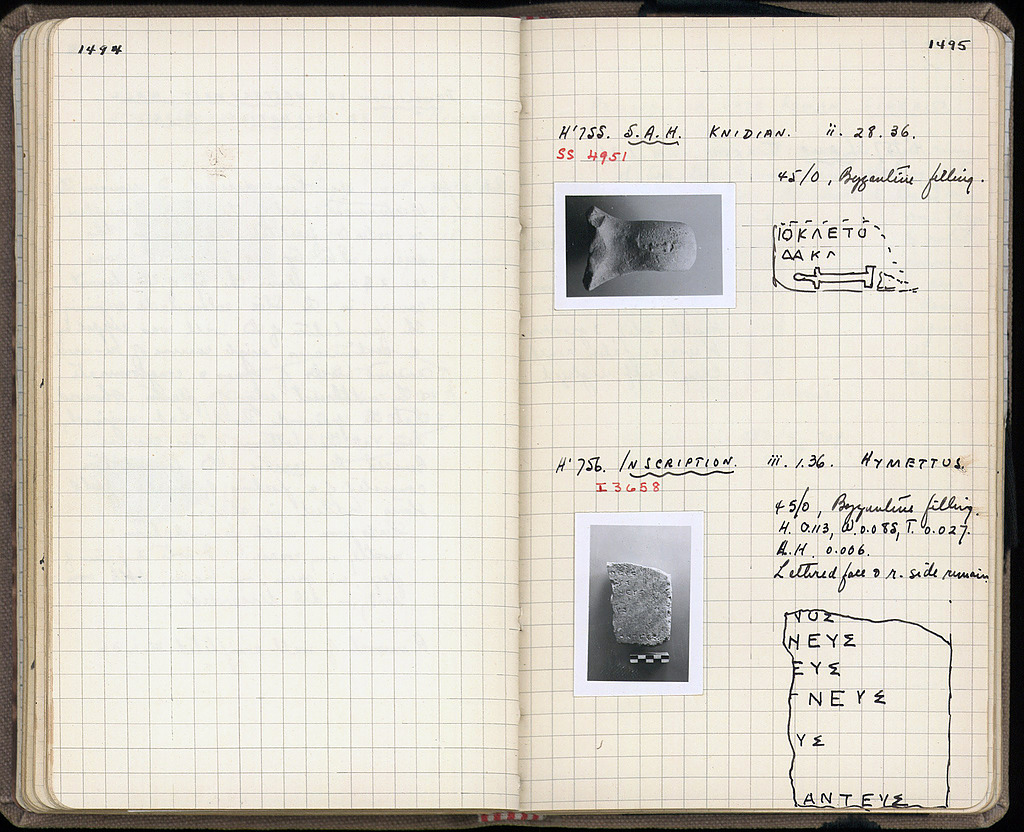 1494
1495
H'755. S.A.H. KNIDIAN. ii. 28. 36.
SS 4951
45/O, Byzantine filling.
ΙΟΚΛΕΤΟ
ΔΑΚΛ
H'756. INSCRIPTION. iii. 1. 36. HYMETTUS.
I 3658
45/O, Byzantine filling.
H. 0.113, W. 0.085, T. 0.027.
L.H. 0.006.
Lettered face & r. side remain
ΟΣ
ΝΕΥΣ
ΕΥΣ
ΝΕΥΣ
ΥΣ
ΑΝΤΕΥΣ